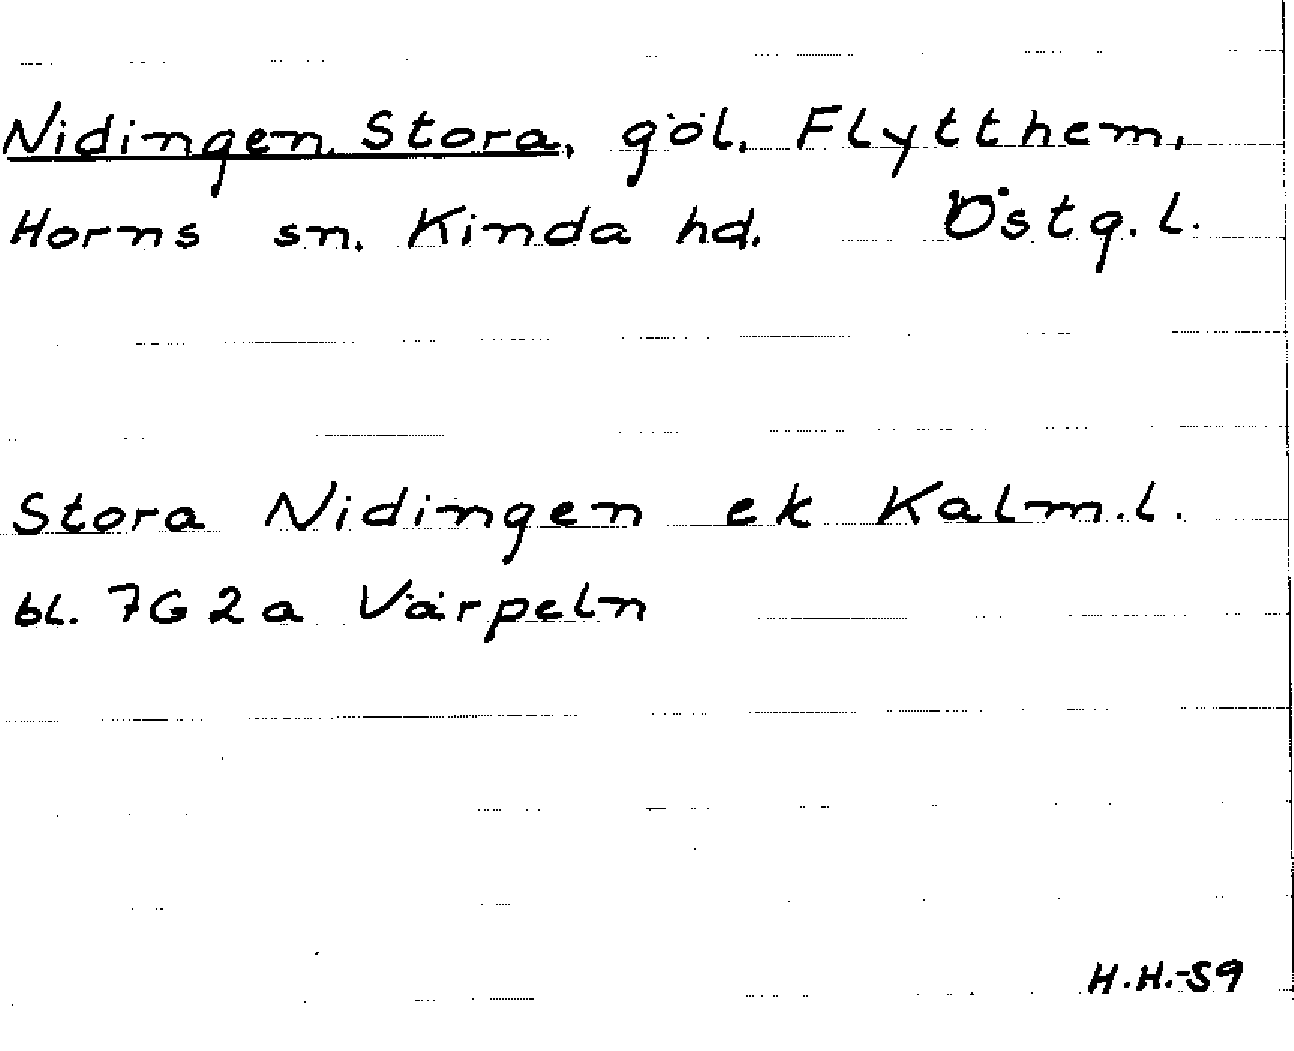 Nidingen Stora, göl, Flytthem,
Horns sn. Kinda hd. Östg. l.
Stora Nidingen ek Kalm.l.
bl. 7G2a Värpeln
H.H.-59